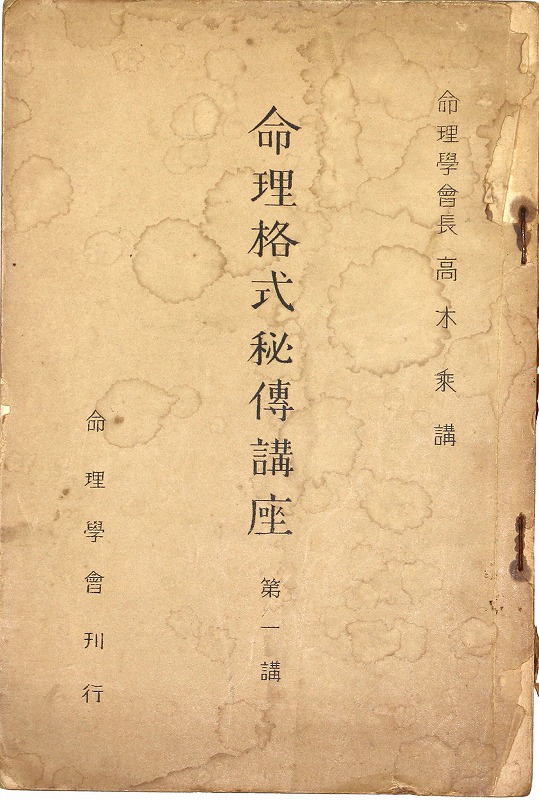 命理學會長高木乘講
命理格式秘傳講座 第一講
命理學會刊行